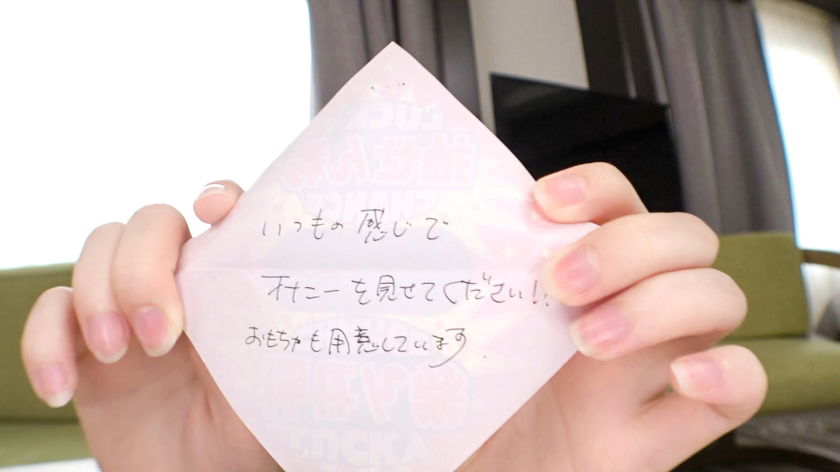 いつもの感じで
オナニーを見せてください!!
おもちゃも用意しています